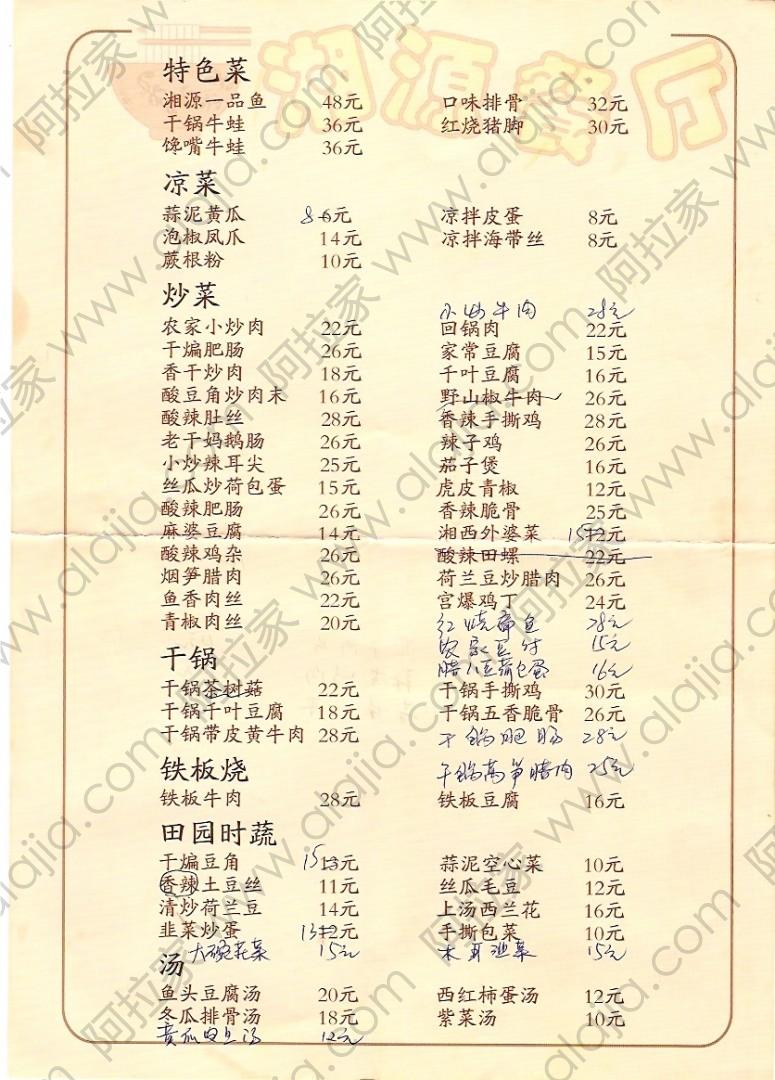 湘源餐厅
特色菜
湘源一品鱼 48元 口味排骨 32元
干锅牛蛙 36元 红烧猪脚 30元
馋嘴牛蛙 36元
凉菜
蒜泥黄瓜 8 6元 凉拌皮蛋 8元
泡椒凤爪 14元 凉拌海带丝 8元
蕨根粉 10元
炒菜 小炒牛肉 28元
农家小炒肉 22元 回锅肉 22元
干煸肥肠 26元 家常豆腐 15元
香干炒肉 18元 千叶豆腐 16元
酸豆角炒肉末 16元 野山椒牛肉 26元
酸辣肚丝 28元 香辣手撕鸡 28元
老干妈鹅肠 26元 辣子鸡 26元
小炒辣耳尖 25元 茄子煲 16元
丝瓜炒荷包蛋 15元 虎皮青椒 12元
酸辣肥肠 26元 香辣脆骨 25元
麻婆豆腐 14元 湘西外婆菜 15 12元
酸辣鸡杂 26元 酸辣田螺 22元
烟笋腊肉 26元 荷兰豆炒腊肉 26元
鱼香肉丝 22元 宫爆鸡丁 24元
青椒肉丝 20元 红烧章鱼 28元
农家豆付 15元
腊八豆荷包蛋 16元
干锅
干锅茶树菇 22元 干锅手撕鸡 30元
干锅千叶豆腐 18元 干锅五香脆骨 26元
干锅带皮黄牛肉 28元 干锅肥肠 28元
铁板烧 干锅莴笋腊肉 25元
铁板牛肉 28元 铁板豆腐 16元
田园时蔬
干煸豆角 15 13元 蒜泥空心菜 10元
香辣土豆丝 11元 丝瓜毛豆 12元
清炒荷兰豆 14元 上汤西兰花 16元
韭菜炒蛋 13 12元 手撕包菜 10元
大碗花菜 15元 木耳油菜 15元
汤
鱼头豆腐汤 20元 西红柿蛋汤 12元
冬瓜排骨汤 18元 紫菜汤 10元
黄瓜皮旦汤 12元
阿拉家 www.alajia.com